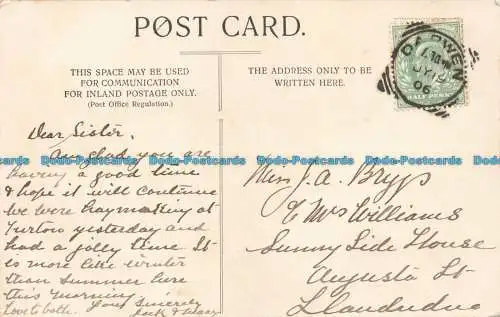 POST CARD.
THIS SPACE MAY BE USED
FOR COMMUNICATION
FOR INLAND POSTAGE ONLY.
(Post Office Regulation.)
THE ADDRESS ONLY TO BE
WRITTEN HERE.
DARWEN
JY 12
06
HALF PENNY
Dear Sister,
Am glad you are
having a good time
& hope it will continue
we were haymaking at
Turton yesterday and
had a jolly time It
is more like winter
than summer here
this morning.
Love to both. Yours Sincerely
Jack &
Miss J. A. Bryps
C/o Mrs Williams
Sunny Side House
Augusta St
Llandudno
Postcards Postcards Postcards Postcards Postcards Postcards
Postcards Postcards Postcards Postcards Postcards